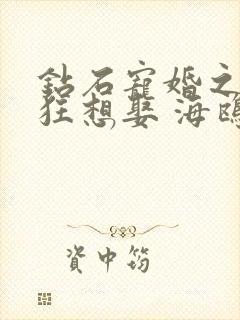 鉆石寵婚之
狂想娶 海
資中筠